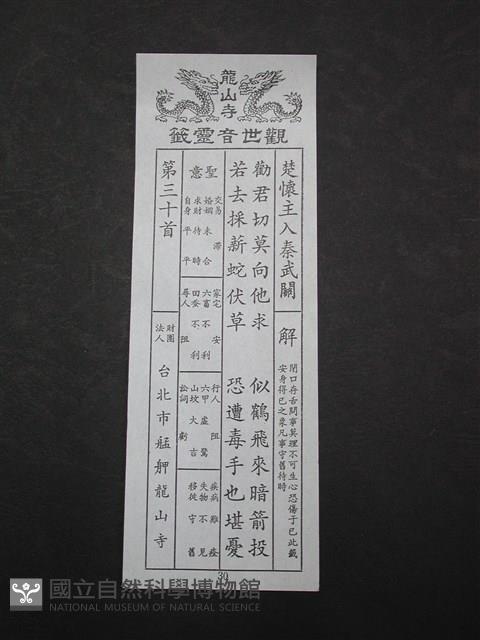 龍山寺
觀世音靈籤
楚懷主入秦武關
解
閉口存舌問事莫理不可生心恐傷于己此籤
安身得已之象凡事守舊待時
勸君切莫向他求
似鶴飛來暗箭投
若去採薪蛇伏草
恐遭毒手也堪憂
聖意
交易 滯
婚姻 未合
求財 待時
自身 平平
家宅 安
六畜 不利
田蚕 不利
尋人 阻
行人 阻
六甲 虛驚
山坟 大吉
訟詞 虧
疾病 難痊
失物 不見
移徙 守舊
第三十首
財團法人
台北市艋舺龍山寺
30
國立自然科學博物館
NATIONAL MUSEUM OF NATURAL SCIENCE